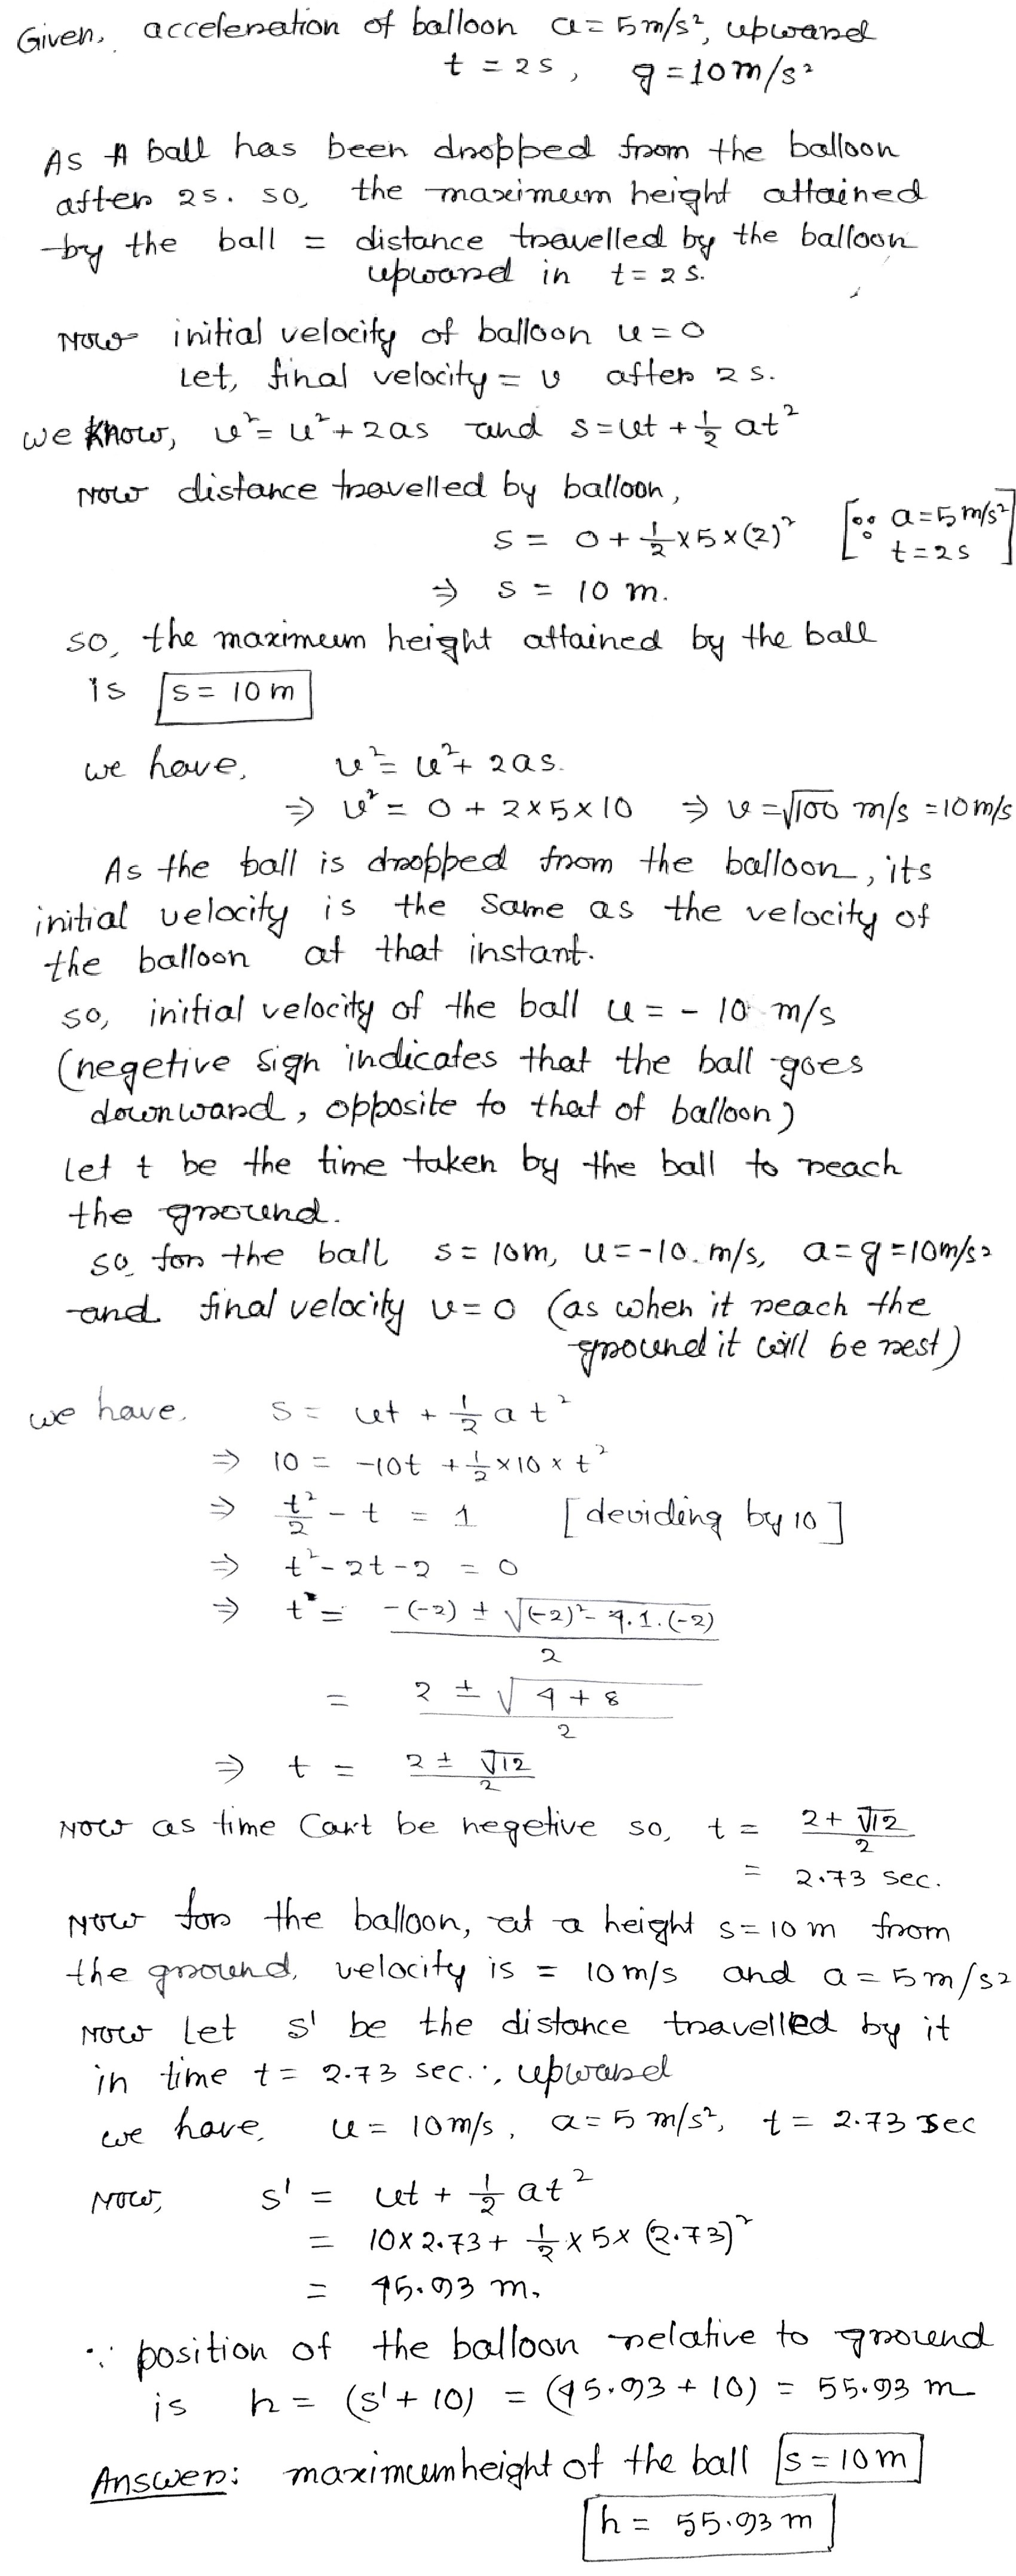 Given, acceleration of balloon a = 5 m/s², upward
t = 2s, g = 10 m/s²
As A ball has been dropped from the balloon
after 2s. so, the maximum height attained
by the ball = distance travelled by the balloon
upward in t = 2 s.
Now initial velocity of balloon u = 0
Let, final velocity = v after 2 s.
we know, v² = u² + 2as and s = ut + 1/2 at²
Now distance travelled by balloon,
s = 0 + 1/2 × 5 × (2)² [∵ a = 5 m/s²
t = 2s]
⇒ s = 10 m.
so, the maximum height attained by the ball
is s = 10 m
we have, v² = u² + 2as.
⇒ v² = 0 + 2×5×10 ⇒ v = √100 m/s = 10 m/s
As the ball is dropped from the balloon, its
initial velocity is the same as the velocity of
the balloon at that instant.
so, initial velocity of the ball u = - 10 m/s
(negetive sign indicates that the ball goes
downward, opposite to that of balloon)
Let t be the time taken by the ball to reach
the ground.
so, for the ball s = 10m, u = -10. m/s, a = g = 10m/s²
and final velocity v = 0 (as when it reach the
ground it will be rest)
we have, s = ut + 1/2 at²
⇒ 10 = -10t + 1/2 × 10 × t²
⇒ t²/2 - t = 1 [deviding by 10]
⇒ t² - 2t - 2 = 0
⇒ t = -(-2) ± √(-2)² - 4.1.(-2) / 2
= 2 ± √4 + 8 / 2
⇒ t = 2 ± √12 / 2
Now as time Can't be negetive so, t = 2 + √12 / 2
= 2.73 sec.
Now for the balloon, at a height s = 10 m from
the ground, velocity is = 10 m/s and a = 5 m/s²
Now Let s' be the distance travelled by it
in time t = 2.73 sec., upward
we have, u = 10 m/s, a = 5 m/s², t = 2.73 sec
Now, s' = ut + 1/2 at²
= 10 × 2.73 + 1/2 × 5 × (2.73)²
= 45.93 m.
∵ position of the balloon relative to ground
is h = (s' + 10) = (45.93 + 10) = 55.93 m
Answer: maximum height of the ball s = 10 m
h = 55.93 m